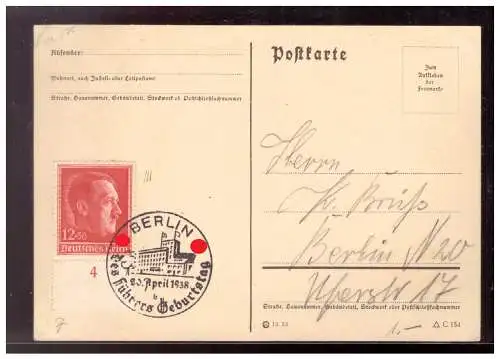 Absender:
Wohnort, auch Zustell- oder Leitpostamt
Straße, Hausnummer, Gebäudeteil, Stockwerk od. Postschließfachnummer
Postkarte
Zum
Aufkleben
der
Freimarke
Herrn
K.
Berlin N 20
Uferstr 17
12+38
Deutsches Reich
4
BERLIN
20. April 1938
des Führers Geburtstag
Straße, Hausnummer, Gebäudeteil, Stockwerk oder Postschließfachnummer
C 154
1.-